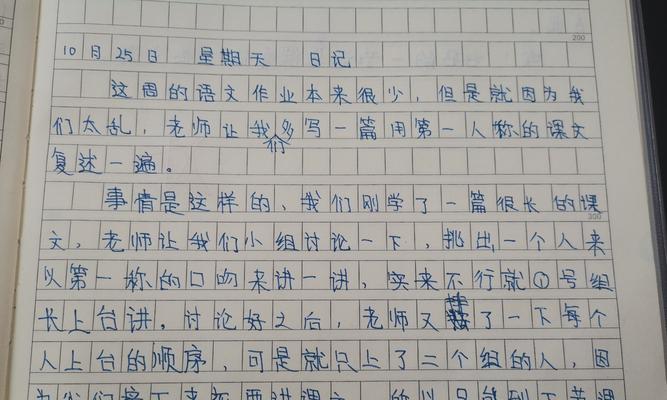 200
10月25日 星期天 日记
这周的语文作业本来很少，但是就因为我
们太乱，老师让我们多写一篇用第一人称的课文
复述一遍。
事情是这样的，我们刚学了一篇很长的课
300
文，老师让我们小组讨论一下，挑出一个人来
以第一称的口吻来讲一讲，实来不行就①号组
长上台讲，讨论好之后，老师又排了一下每个
人上台的顺序，可是就只上了二个组的人，因